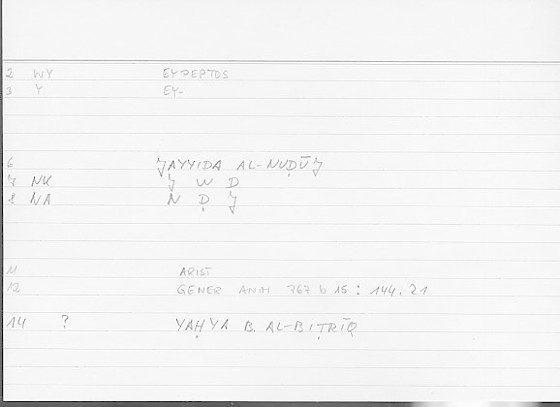 2 WY EYPEPTOS
3 Y EY-
6 JAYYIDA AL-NUḌŪJ
7 NK J W D
8 NA N Ḍ J
11 ARIST
12 GENER ANIM 767 b 15 : 144.21
14 ? YAḤYA B. AL-BIṬRĪQ